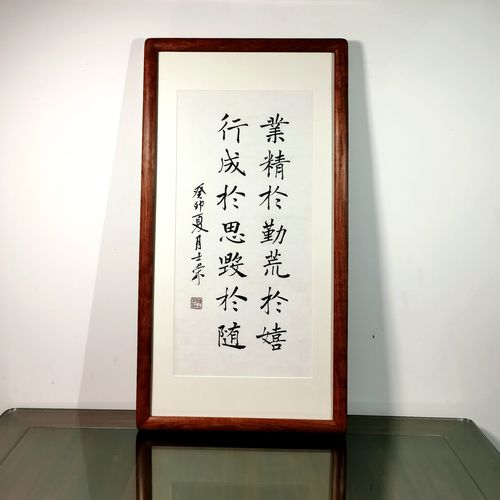 業精於勤荒於嬉
行成於思毁於随
癸卯夏月士崇